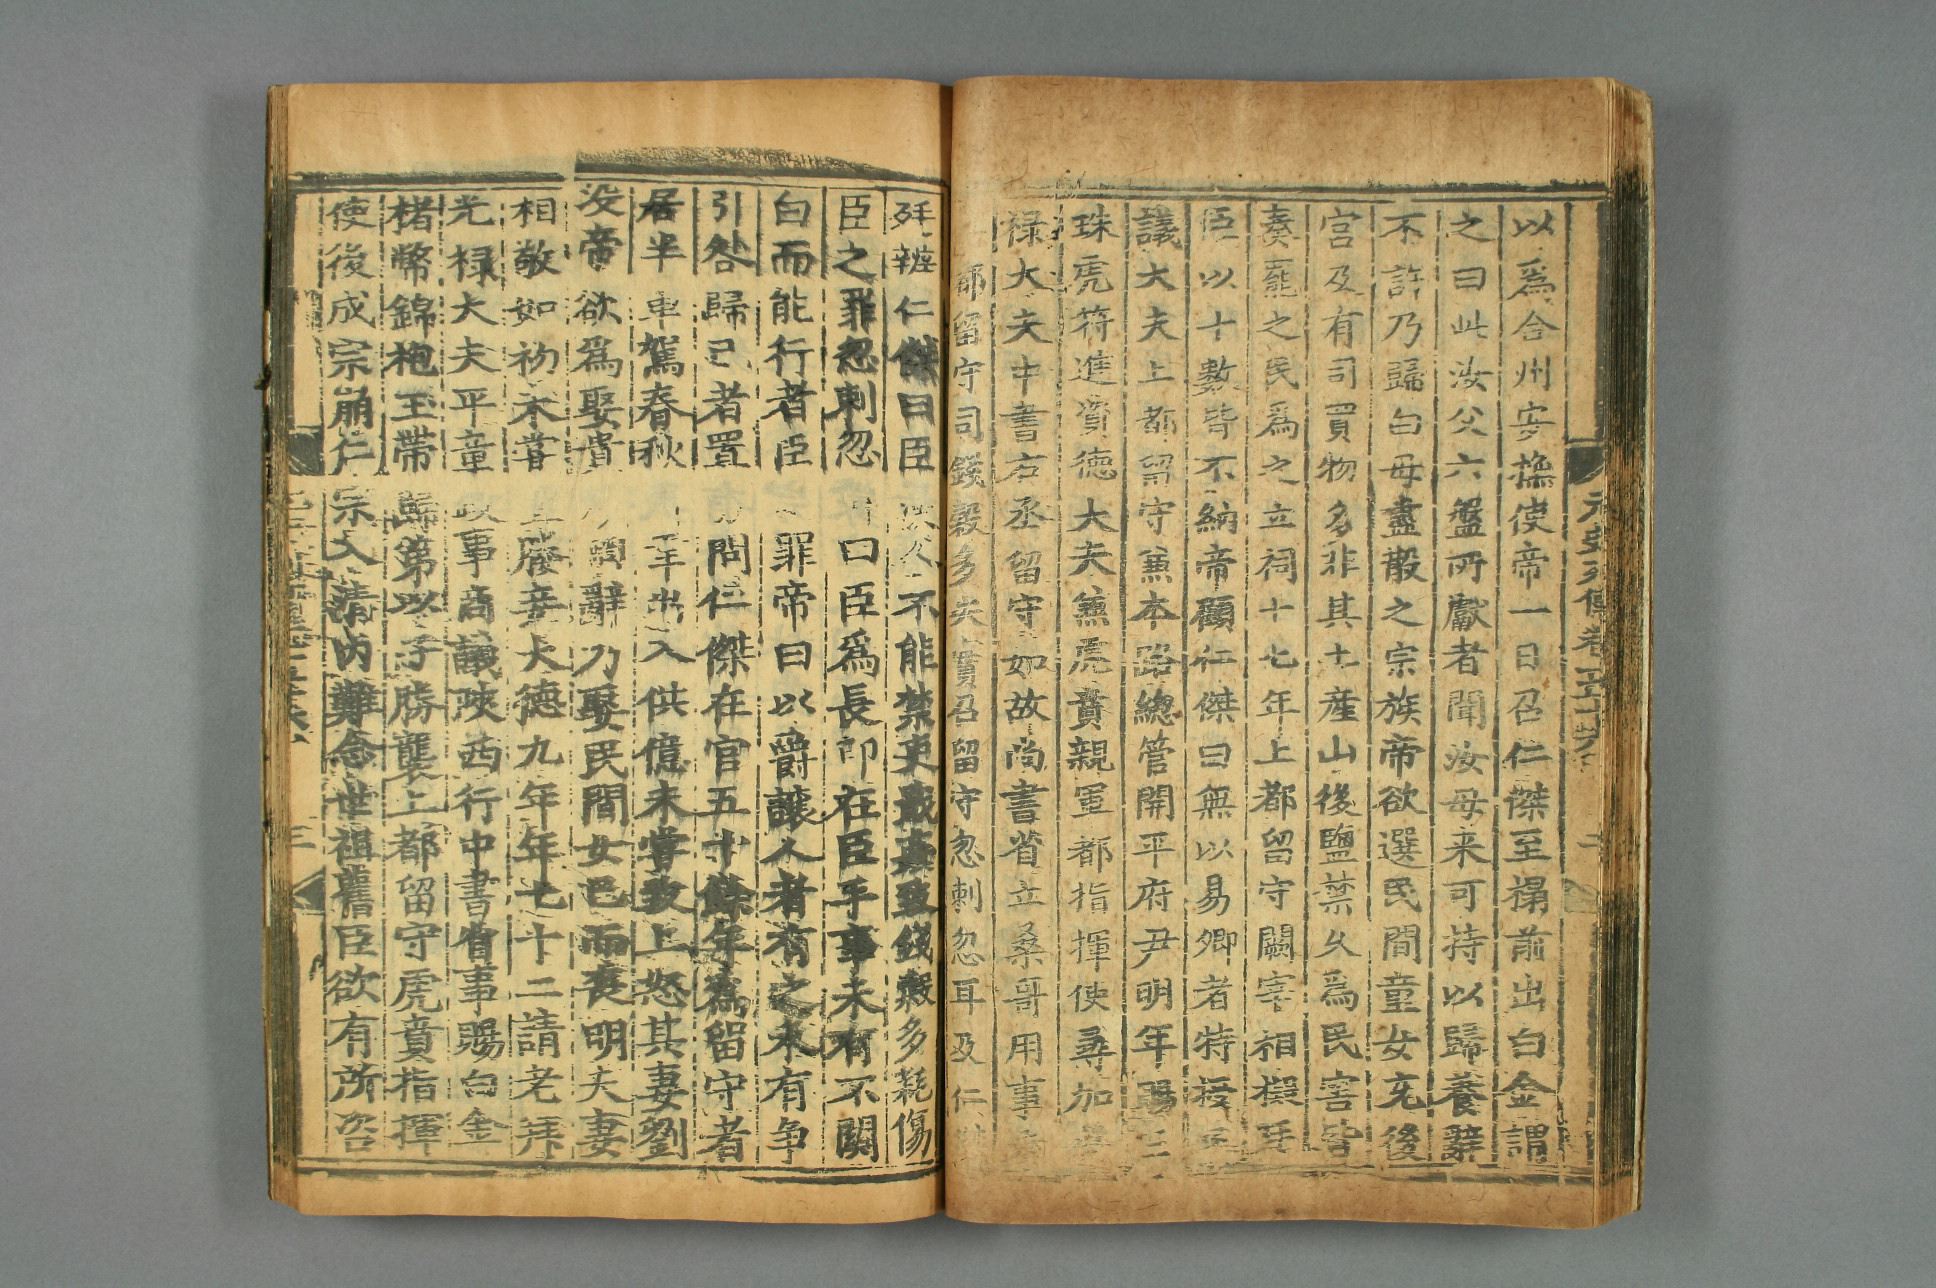 元史列傳卷五十六
以爲合州安撫使帝一日召仁傑至榻前出白金謂
之曰此汝父六盤所獻者聞汝母来可持以歸養辭
不許乃歸白母盡散之宗族帝欲選民間童女充後
宮及有司買物多非其土産山後鹽禁久爲民害皆
奏罷之民爲之立祠十七年上都留守闕宰相擬廷
臣以十數皆不納帝顧仁傑曰無以易卿者特授
議大夫上都留守兼本路總管開平府尹明年賜三
珠虎符進資德大夫兼虎賁親軍都指揮使尋加
禄大夫中書右丞留守如故尚書省立桑哥用事
都留守司錢穀多失實召留守忽剌忽耳及仁
廷辨仁傑曰臣 不能禁吏戢姦致錢穀多耗傷
臣之罪忽剌忽 曰臣爲長印在臣手事未有不關
白而能行者臣 罪帝曰以爵讓人者有之未有争
引咎歸己者置 問仁傑在官五十餘年爲留守者
居半車駕春秋 年出入供億未嘗致上怒其妻劉
没帝欲爲娶貴 辭乃娶民間女已而喪明夫妻
相敬如初未嘗 廢妾大德九年年七十二請老拜
光禄大夫平章政事商議陜西行中書省事賜白金
楮幣錦袍玉帶歸第以子勝襲上都留守虎賁指揮
使後成宗崩仁宗入清内難念世祖舊臣欲有所咨
三